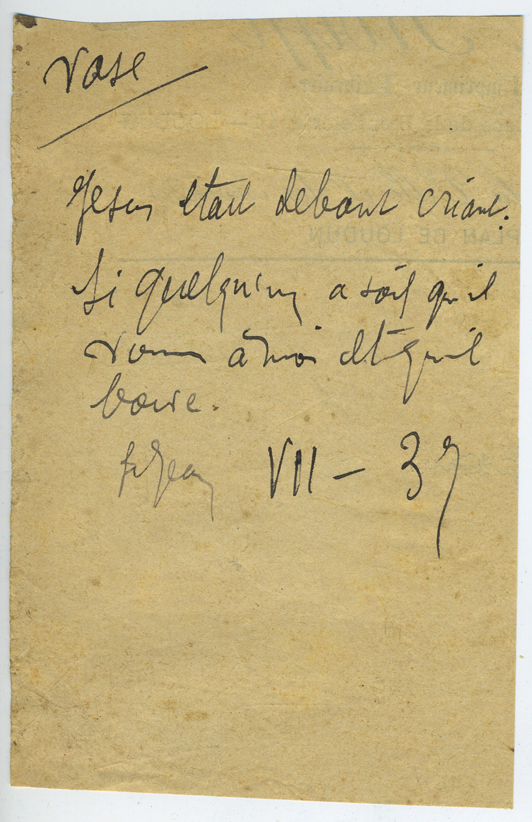 vase
Jesus etait debout criant.
Si quelqu'un a soif qu'il
vienne à moi et qu'il
boive.
St Jean VII – 37
PLAN DE LOUDUN